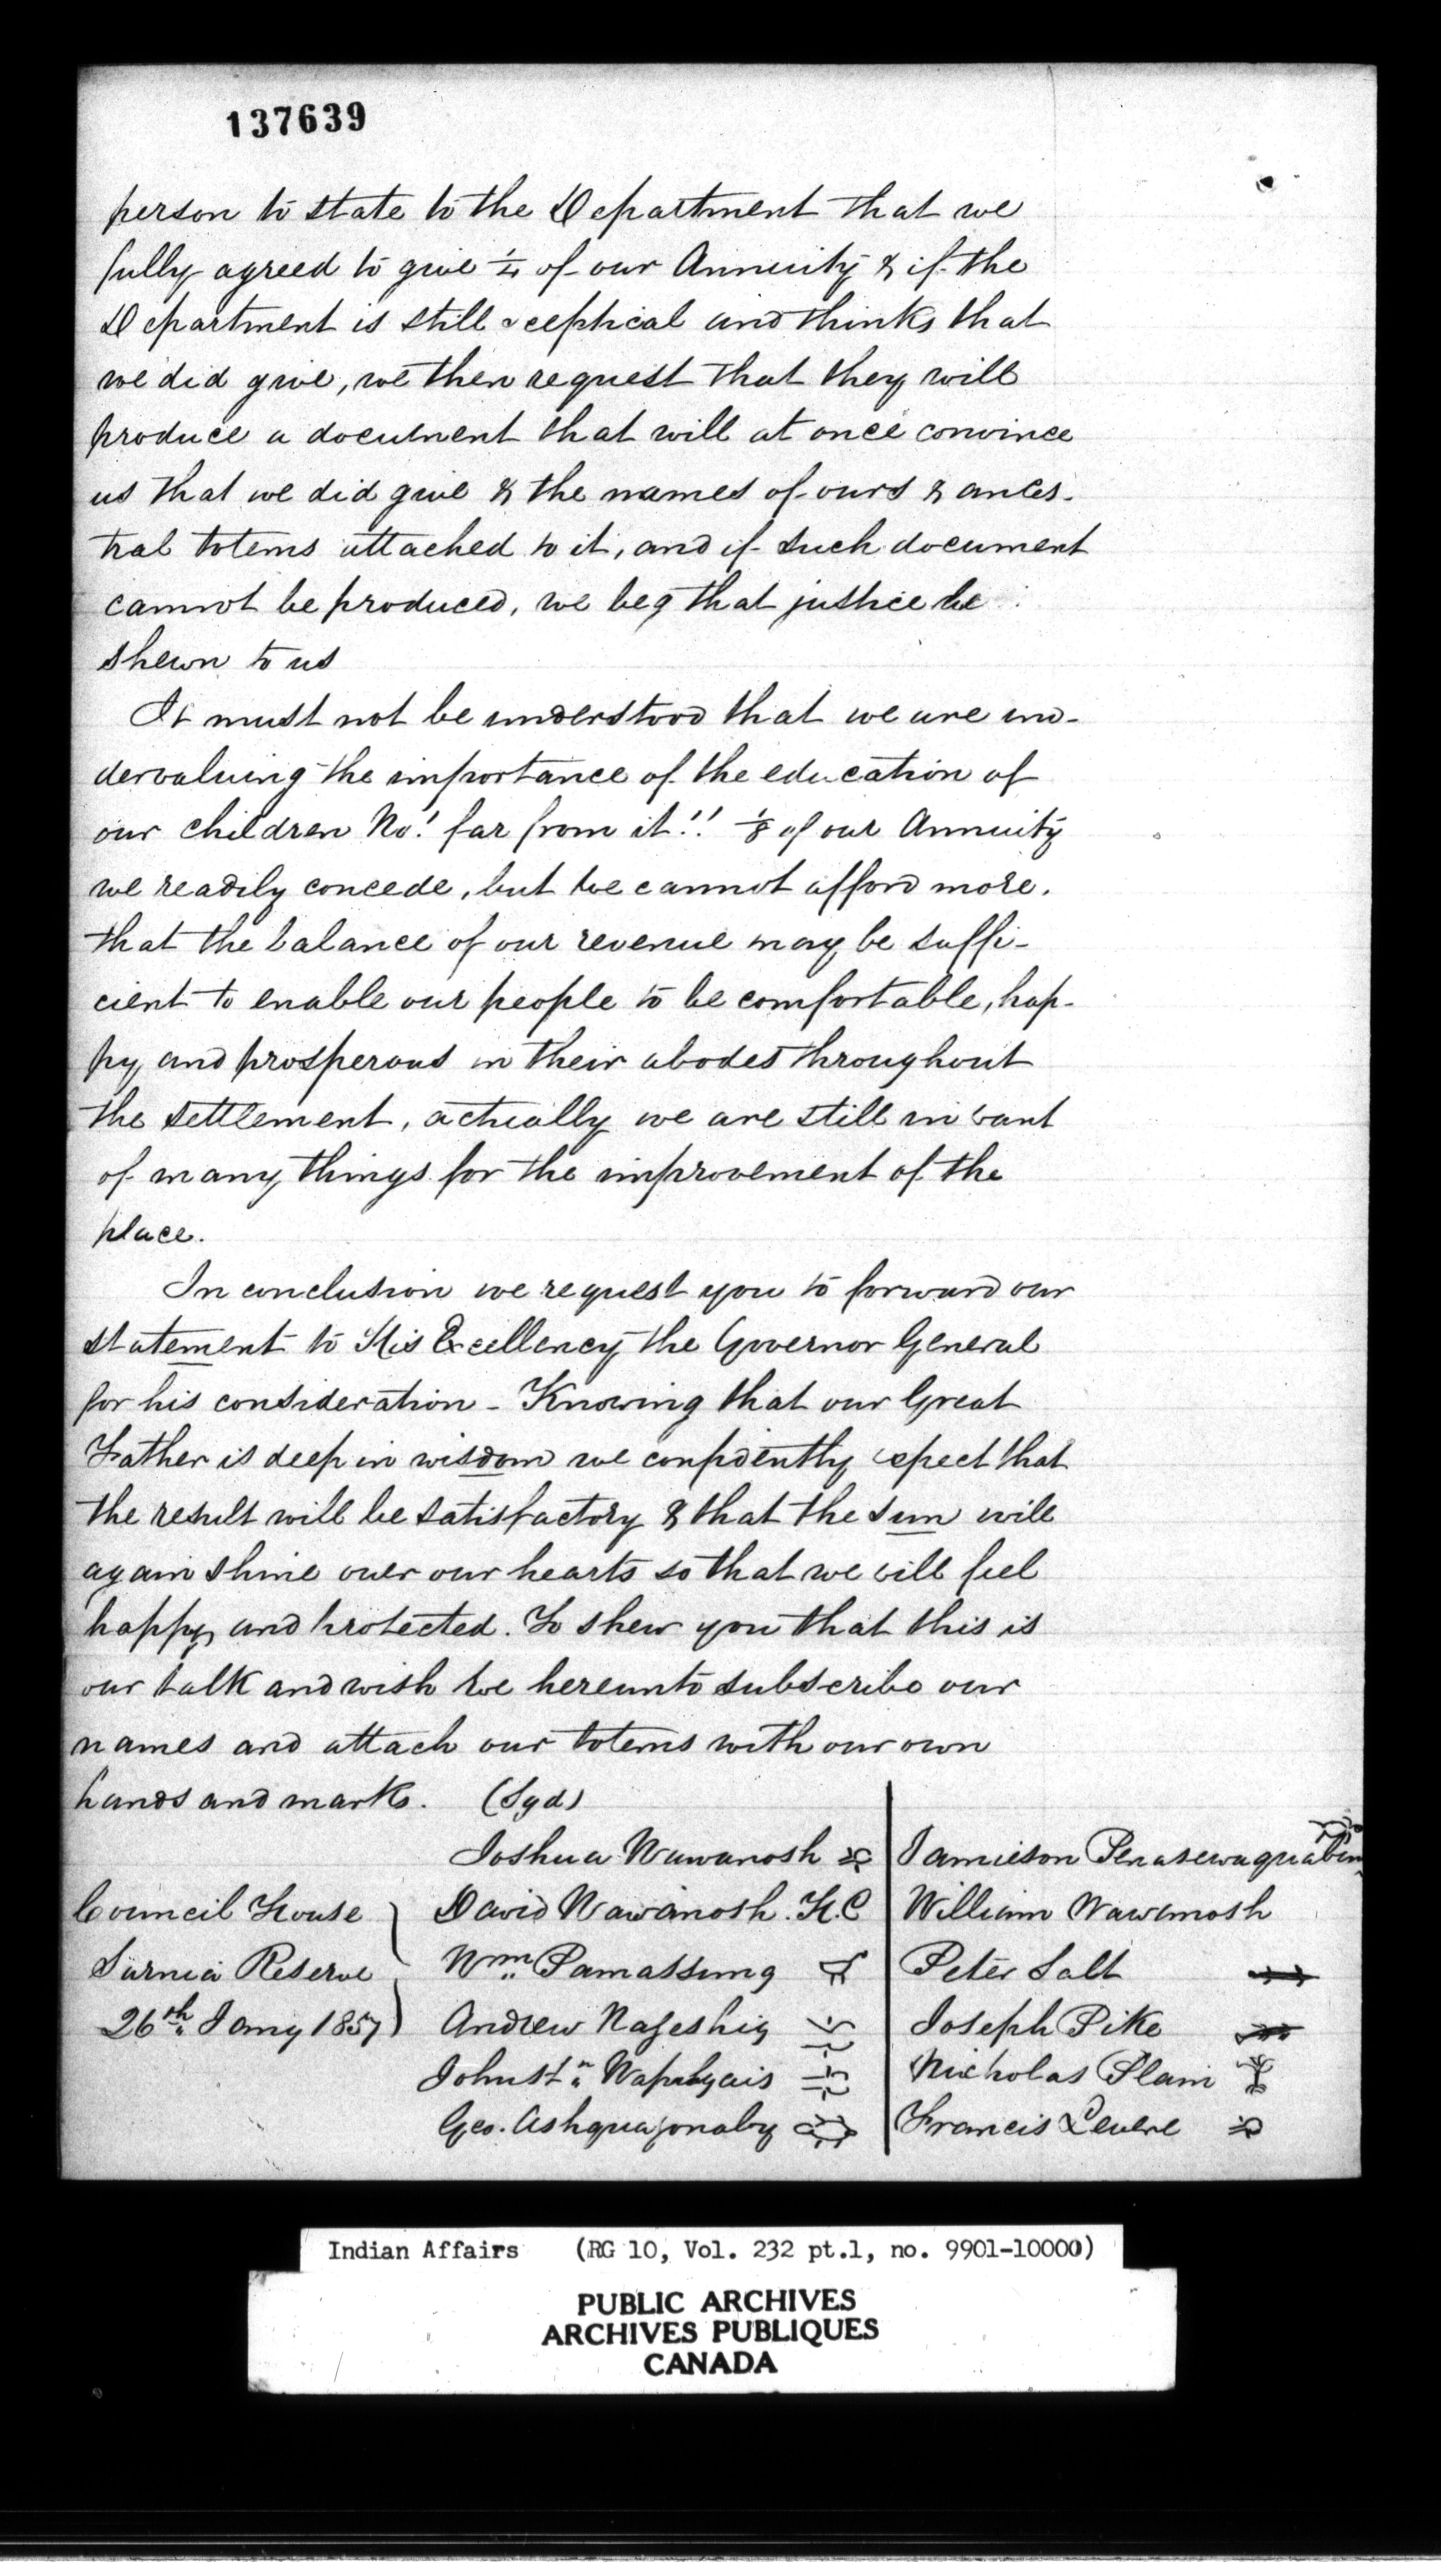 137639
person to state to the Department that we
fully agreed to give 1/4 of our Annuity & if the
Department is still sceptical and thinks that
we did give, we then request that they will
produce a document that will at once convince
us that we did give & the names of ours & ances-
tral totems attached to it, and if such document
cannot be produced, we beg that justice be
shewn to us
It must not be understood that we are un-
dervaluing the importance of the education of
our children No! far from it!! 1/8 of our Annuity
we readily concede, but we cannot afford more,
that the balance of our revenue may be suffi-
cient to enable our people to be comfortable, hap-
py and prosperous in their abodes throughout
the settlement, actually we are still in want
of many things for the improvement of the
place.
In conclusion we request you to forward our
statement to His Excellency the Governor General
for his consideration - Knowing that our Great
Father is deep in wisdom we confidently expect that
the result will be satisfactory & that the sun will
again shine over our hearts so that we will feel
happy and protected. To shew you that this is
our talk and wish we hereunto subscribe our
names and attach our totems with our own
hands and marks. (Sgd)
Joshua Wawanosh
Jamieson Penasewaquabin
Council House
David Wawanosh. H.C
William Wawanosh
Sarnia Reserve
Wm Pamassung
Peter Salt
26th Jany 1857
Andrew Nageshig
Joseph Pike
Johnstn
Nicholas Plain
Geo. Ashquajonaby
Francis
Indian Affairs (RG 10, Vol. 232 pt.1, no. 9901-10000)
PUBLIC ARCHIVES
ARCHIVES PUBLIQUES
CANADA